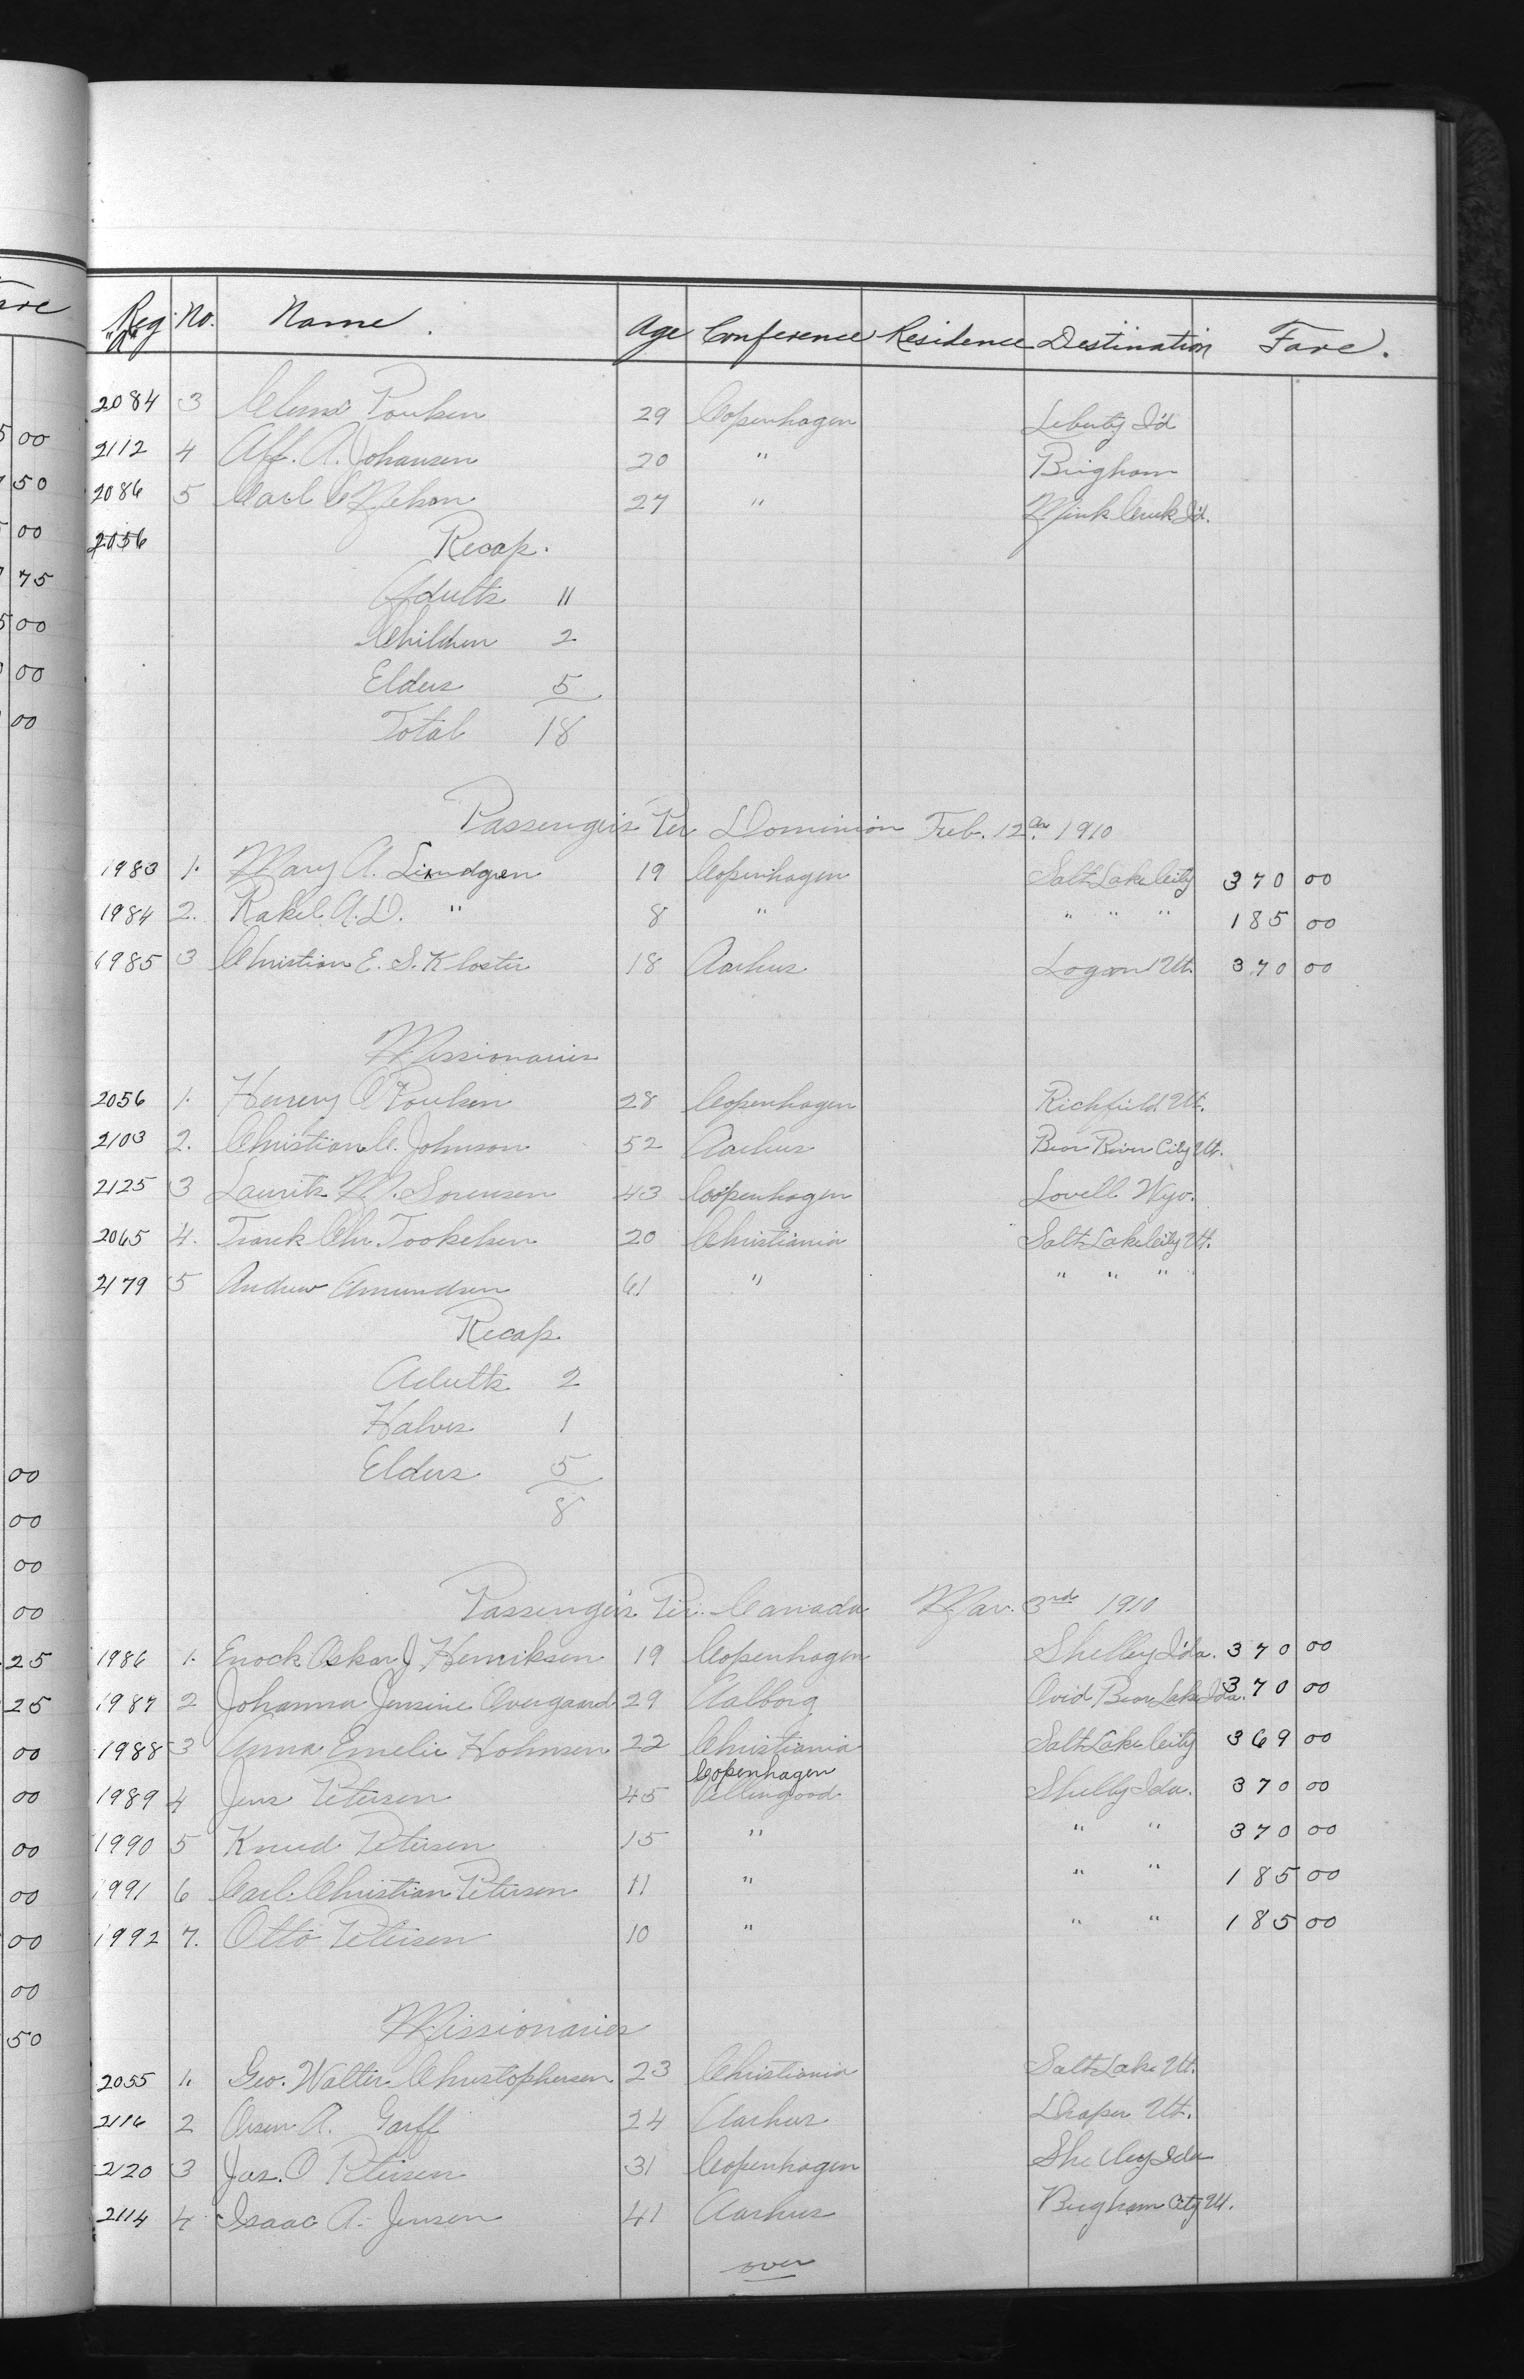 Reg. "A" No. Name. Age Conference Residence Destination Fare.
2084 3 Clemi Poulsen 29 Copenhagen Liberty I'd
2112 4 Alf. A. Johansen 20 " Brigham
2086 5 Carl C Nielson 27 " Mink Creek I'd.
2056 Recap.
Adults 11
Children 2
Elders 5
Total 18
Passengers Per Dominion Feb. 12 1910
1983 1. Mary A. Lindgren 19 Copenhagen Salt Lake City 370 00
1984 2. Rakel A.D. " 8 " " " " 185 00
1985 3 Christian E. S. Kloster 18 Aarhus Logan Ut. 370 00
Missionaries
2056 1. Henery O Poulsen 28 Copenhagen Richfield Ut.
2103 2. Christian C. Johnson 52 Aarhus Bear River City Ut.
2125 3 Lauritz M. Sorensen 43 Copenhagen Lovell Wyo.
2065 4. Chr. 20 Christiania Salt Lake City Ut.
2179 5 Andrew Amundsen 61 " " " "
Recap
Adults 2
Halves 1
Elders 5
8
Passengers Per. Canada Mar. 3rd 1910
1986 1. Enock Oskar J Henriksen 19 Copenhagen Shelley Ida. 370 00
1987 2 Johanna Jensine Overgaard 29 Aalborg Ovid Bear Lake Ida. 370 00
1988 3 Anna Emelie Hohnsen 22 Christiania Salt Lake City 369 00
Copenhagen
1989 4 Jens Petersen 45 Shelly Ida. 370 00
1990 5 Knud Petersen 15 " " " 370 00
1991 6 Carl Christian Petersen 11 " " " 185 00
1992 7. Otto Petersen 10 " " " 185 00
Missionaries
2055 1. Geo. Walter Christophersen 23 Christiania Salt Lake Ut.
2116 2 A. Garff 24 Aarhus Draper Ut.
2120 3 Jas. O Petersen 31 Copenhagen Shelley Ida
2114 4 Isaac A. Jensen 41 Aarhus Brigham City Ut.
over